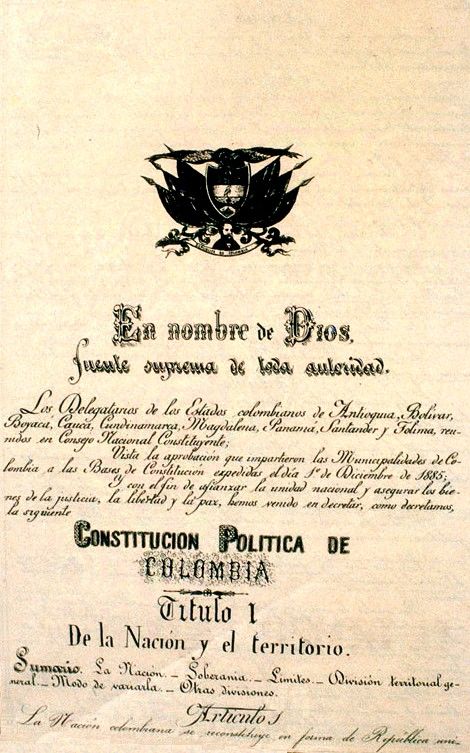 En nombre de Dios,
fuente suprema de toda autoridad.
Los Delegatarios de los Estados colombianos de Antioquia, Bolívar,
Boyacá, Cauca, Cundinamarca, Magdalena, Panamá, Santander y Tolima, reu-
nidos en Consejo Nacional Constituyente;
Vista la aprobación que impartieron las Municipalidades de Co-
lombia a las Bases de Constitución expedidas el día 1º de Diciembre de 1885;
Y con el fin de afianzar la unidad nacional y asegurar los bie-
nes de la justicia, la libertad y la paz, hemos venido en decretar, como decretamos,
la siguiente
CONSTITUCION POLITICA DE
COLOMBIA
Titulo I
De la Nación y el territorio.
Sumario. La Nación. – Soberanía. – Limites. – División territorial ge-
neral. – Modo de variarla. – Otras divisiones.
Artículo 1
La Nación colombiana se reconstituye en forma de República uni-